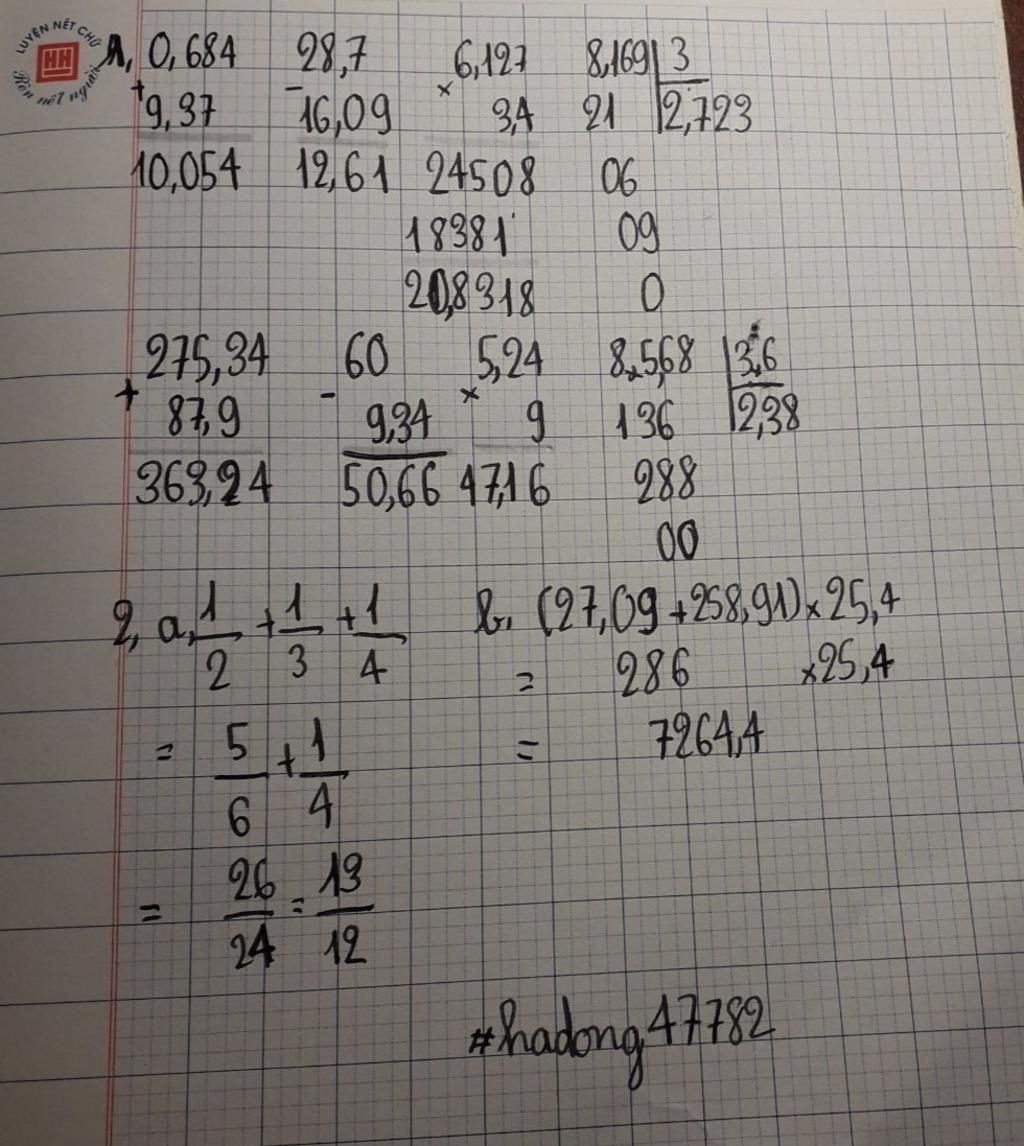 LUYỆN NẾT CHỮ
HH
Rèn nết người
1, 0,684 28,7 6,127 8,169 3
+ 9,37 - 16,09 × 3,4 21 2,723
10,054 12,61 24508 06
18381 09
20,8318 0
275,34 60 5,24 8,5,68 3,6
+ 87,9 - 9,34 × 9 136 2,38
363,24 50,66 47,16 288
00
2, a, 1/2 + 1/3 + 1/4 b, (27,09 + 258,91) × 25,4
= 286 × 25,4
= 5/6 + 1/4 = 7264,4
= 26/24 = 13/12
#hadong47782